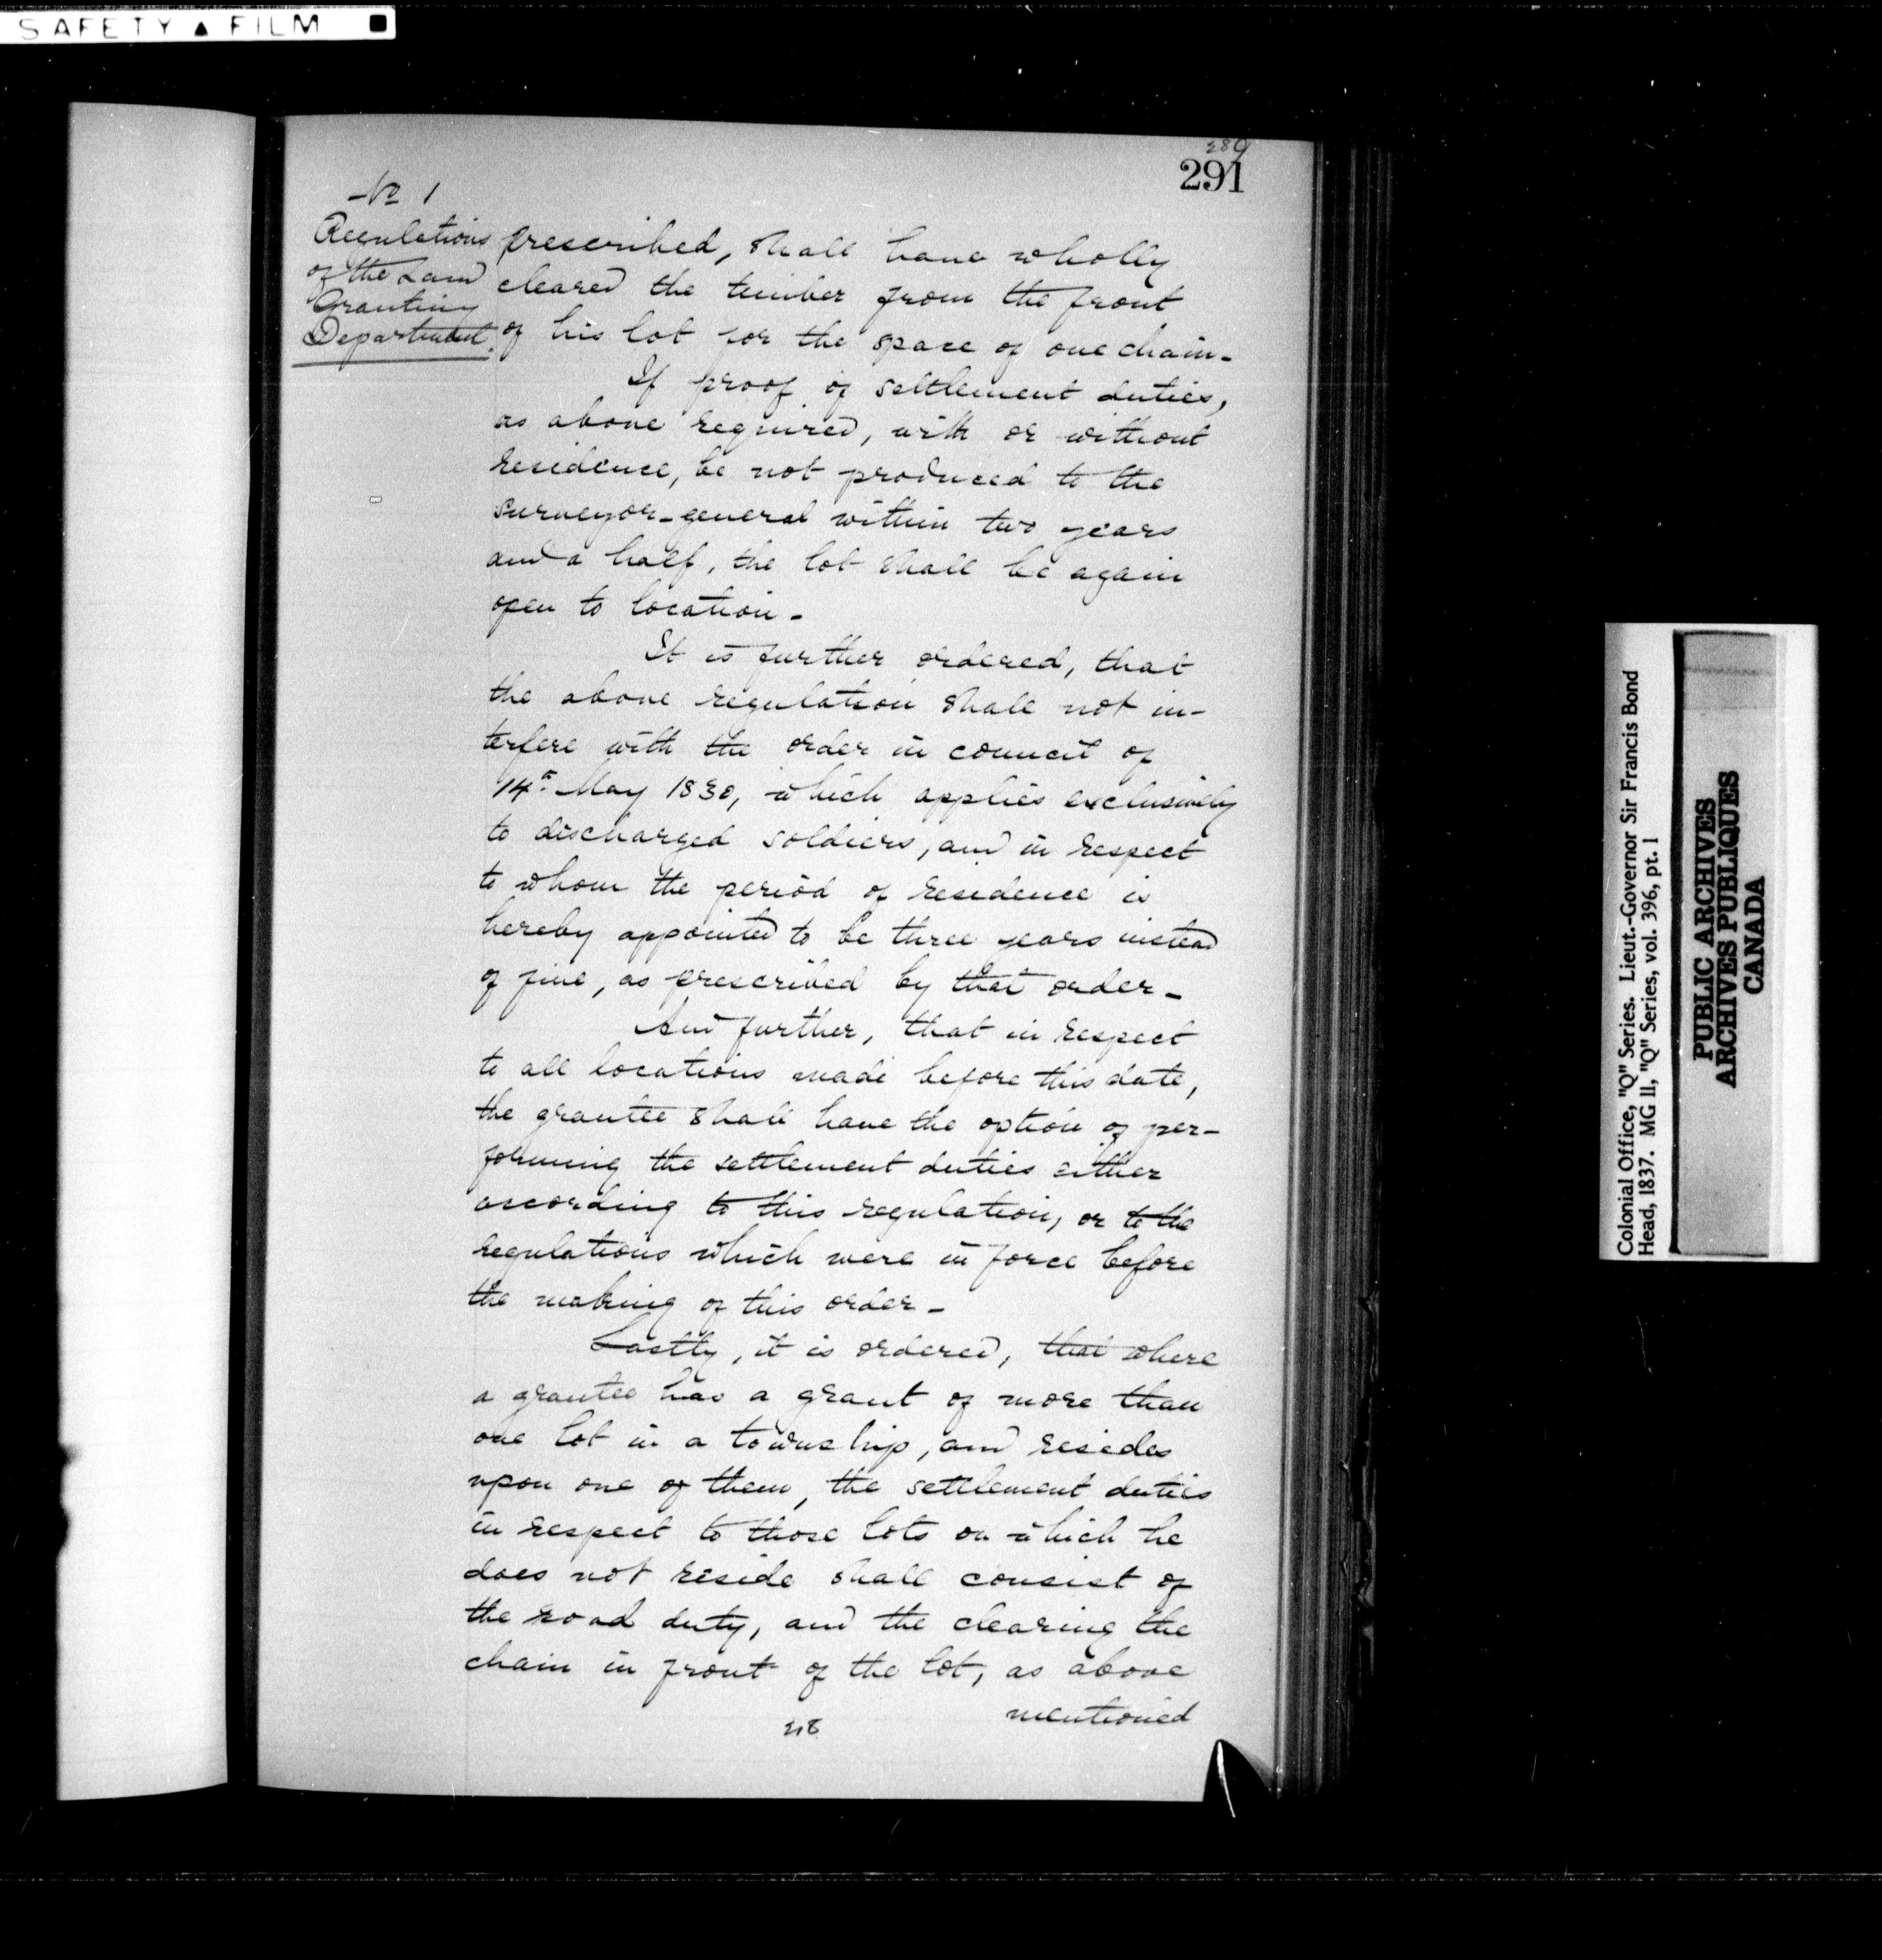 SAFETY ▲ FILM ■
289
291
No 1
Regulations
of the Land
Granting
Department.
prescribed, shall have wholly
cleared the timber from the front
of his lot for the space of one chain-
If proof of settlement duties,
as above required, with or without
residence, be not produced to the
surveyor-general within two years
and a half, the lot shall be again
open to location-
It is further ordered, that
the above regulation shall not in-
terfere with the order in council of
14th May 1830, which applies exclusively
to discharged soldiers, and in respect
to whom the period of residence is
hereby appointed to be three years instead
of five, as prescribed by that order-
And further, that in respect
to all locations made before this date,
the grantee shall have the option of per-
forming the settlement duties either
according to this regulation, or to the
regulations which were in force before
the making of this order-
Lastly, it is ordered, that where
a grantee has a grant of more than
one lot in a township, and resides
upon one of them, the settlement duties
in respect to those lots on which he
does not reside shall consist of
the road duty, and the clearing the
chain in front of the lot, as above
mentioned
Colonial Office, "Q" Series. Lieut.-Governor Sir Francis Bond
Head, 1837. MG 11, "Q" Series, vol. 396, pt. 1
PUBLIC ARCHIVES
ARCHIVES PUBLIQUES
CANADA